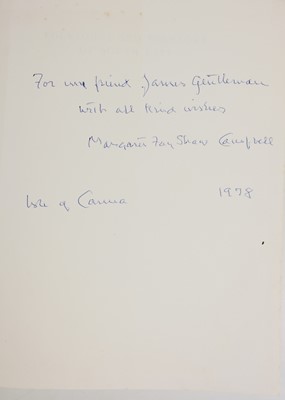 For my friend James Gentleman
with all kind wishes
Margaret Fay Shaw Campbell
Isle of Canna 1978